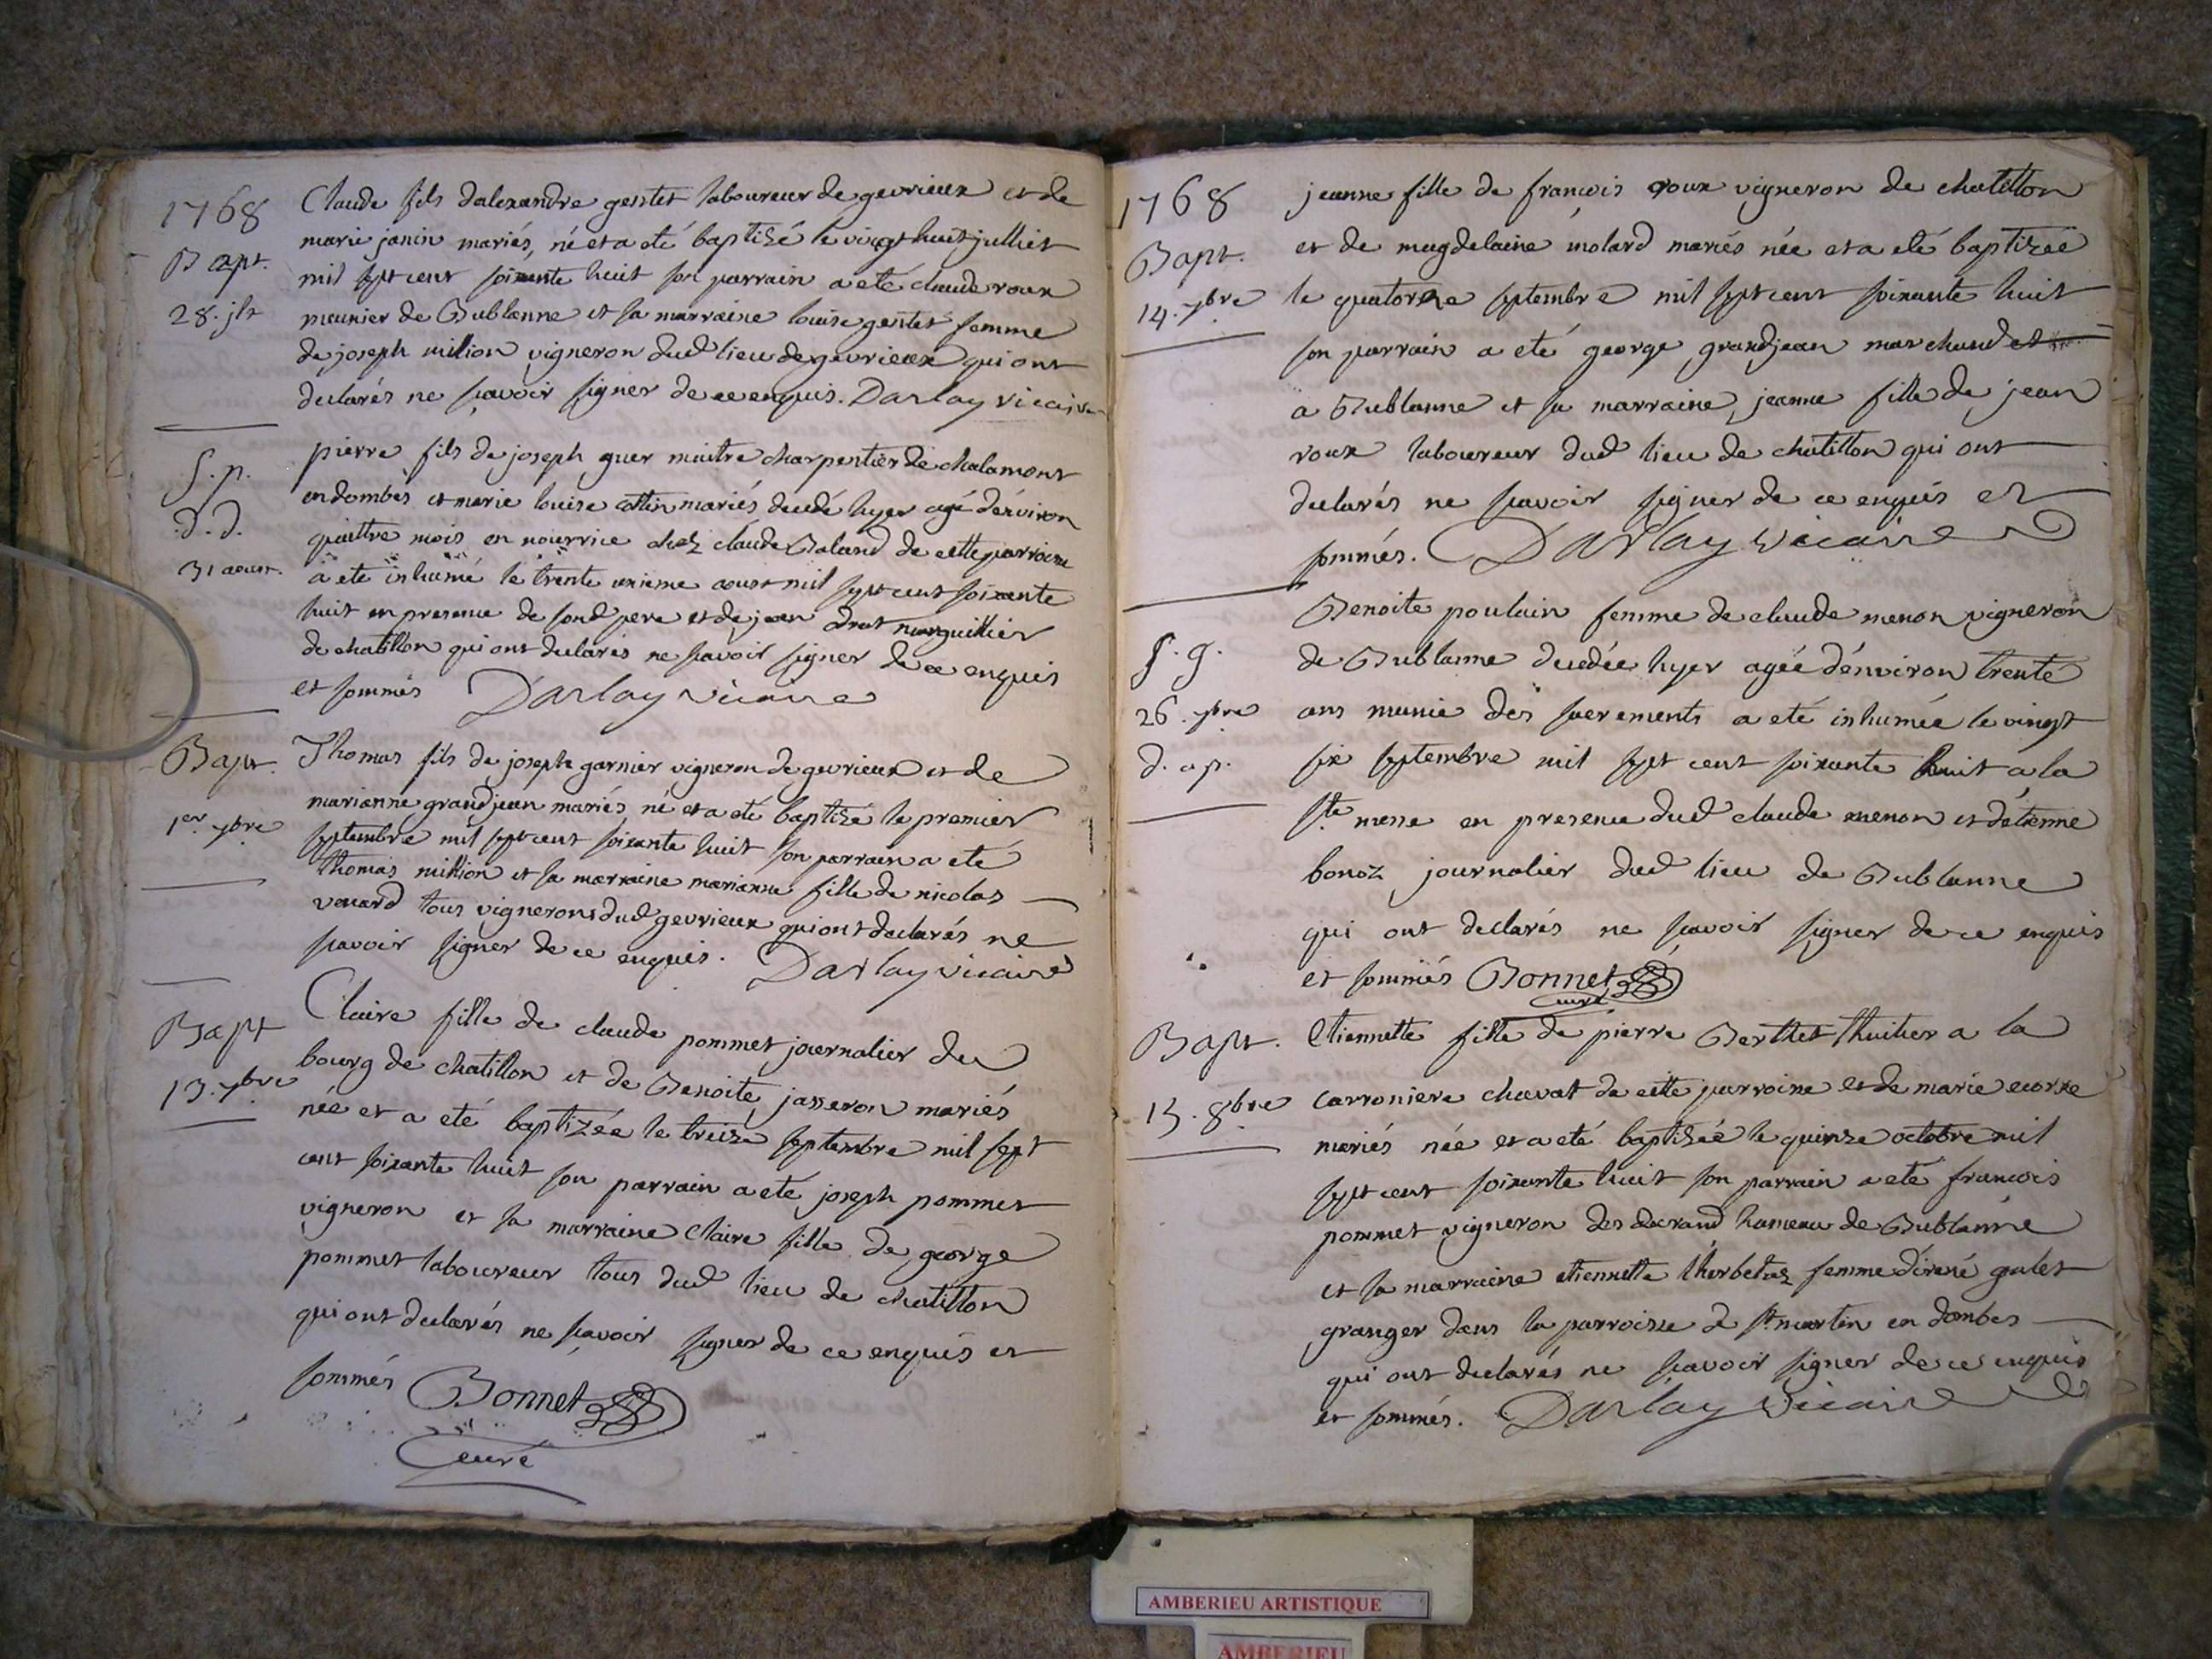 1768
Bapt.
28. jlt
Claude fils d'alexandre gentet laboureur de gevrieux et de
marie janin mariés, né et a eté baptisé le vingt huit julliet
mil sept cent soixante huit son parrain a eté claude roux
meunier de Bublanne et sa marraine louise gentet femme
de joseph milion vigneron dud lieu de gevrieux qui ont
declarés ne sçavoir signer de ce enquis. Darlay vicaire
S. p.
d. d.
31 aoust.
pierre fils de joseph guer maitre charpentier de chalamont
en dombes et marie louise mariés decedé hyer agé d'environ
quattre mois en nourrice chez claude Baland de cette parroisse
a eté inhumé le trente unieme aoust mil sept cent soixante
huit en presence de sond pere et de jean drut marguillier
de chatillon qui ont declarés ne sçavoir signer de ce enquis
et sommés Darlay vicaire
Bapt.
1er 7bre
Thomas fils de joseph garnier vigneron de gevrieux et de
marianne grandjean mariés, né et a eté baptizé le premier
septembre mil sept cent soixante huit son parrain a eté
thomas million et sa marraine marianne fille de nicolas
venard tous vignerons dud gevrieux qui ont declarés ne
scavoir signer de ce enquis. Darlay vicaire
Bapt
13. 7bre
Claire fille de claude pommet journalier du
bourg de chatillon et de Benoite jasseron mariés
née et a eté baptizée le treize septembre mil sept
cent soixante huit son parrain a eté joseph pommet
vigneron et sa marraine Claire fille de george
pommet laboureur tous dud lieu de chatillon
qui ont declarés ne sçavoir signer de ce enquis et
sommés Bonnet
curé
1768
Bapt.
14. 7bre
jeanne fille de francois roux vigneron de chatillon
et de magdelaine molard mariés née et a eté baptizée
le quatorze septembre mil sept cent soixante huit
son parrain a eté george grandjean marchand
a Bublanne et sa marraine jeanne fille de jean
roux laboureur dud lieu de chatillon qui ont
declarés ne scavoir signer de ce enquis et
sommés. Darlay vicaire
S. g.
26. 7bre
d. ap.
Benoite poulain femme de claude menon vigneron
de Bublanne decedée hyer agée d'environ trente
ans munie des sacrements a eté inhumée le vingt
six septembre mil sept cent soixante huit a la
ste messe en presence dud claude menon et d'etienne
bonoz journalier dud lieu de Bublanne
qui ont declarés ne scavoir signer de ce enquis
et sommés Bonnet
curé
Bapt.
15. 8bre
Etiennette fille de pierre Berthet thuilier a la
carroniere chavat de cette parroisse et de marie
mariés née et a eté baptisée le quinze octobre mil
sept cent soixante huit son parrain a eté francois
pommet vigneron hameau de Bublanne
et sa marraine etiennette femme d'irené galet
granger dans la parroisse de st martin en dombes
qui ont declarés ne scavoir signer de ce enquis
et sommés. Darlay vicaire
AMBERIEU ARTISTIQUE
AMBERIEU